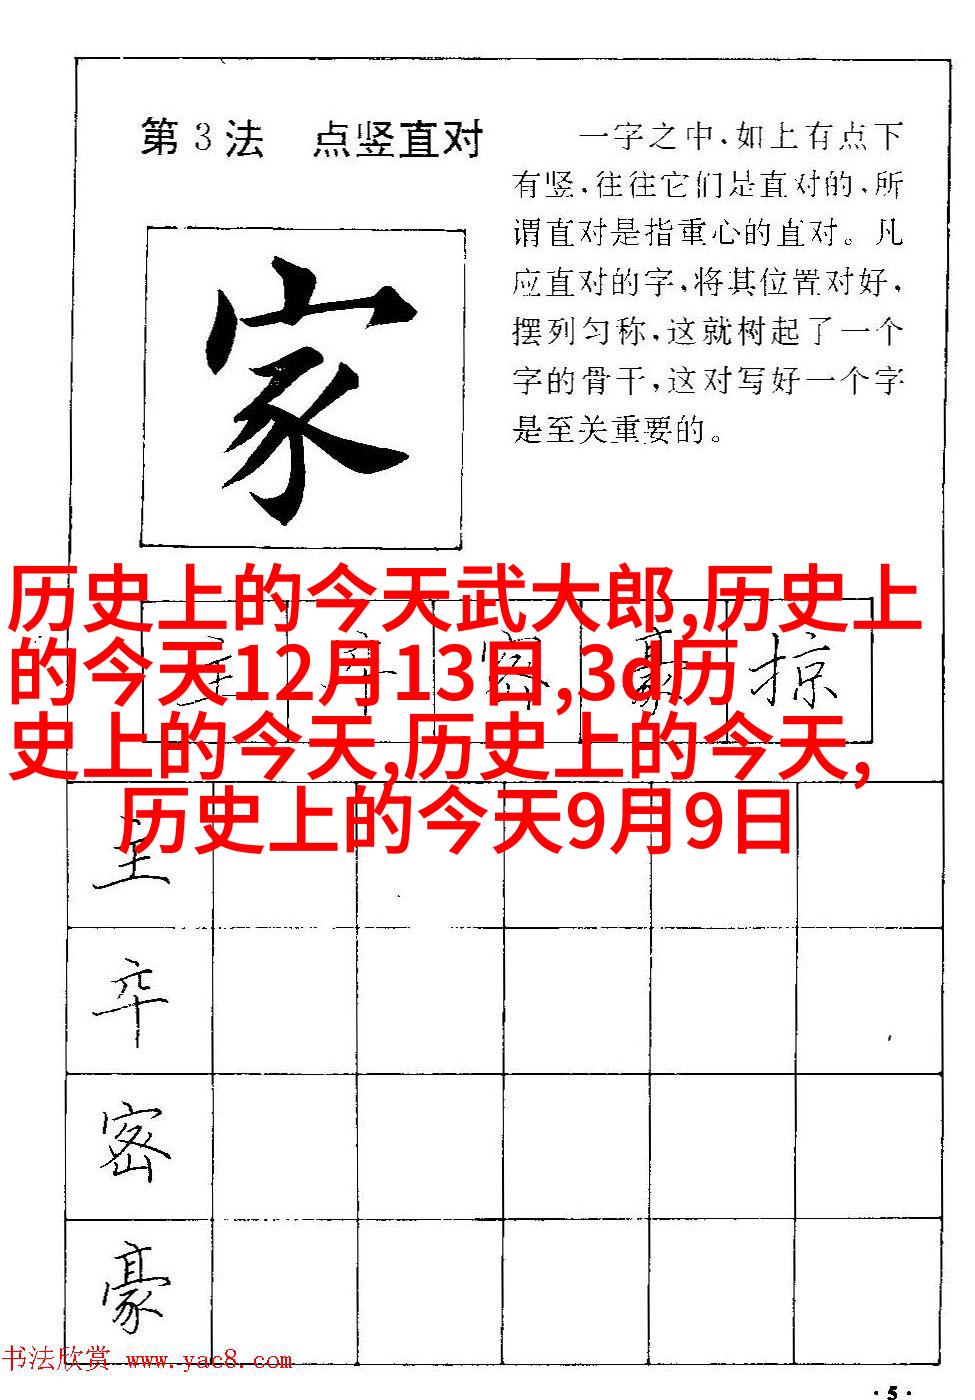 第3法 点竖直对
一字之中，如上有点下
有竖，往往它们是直对的，所
谓直对是指重心的直对。凡
应直对的字，将其位置对好，
摆列匀称，这就树起了一个
字的骨干，这对写好一个字
是至关重要的。
家
历史上的今天武大郎,历史上
的今天12月13日,3d历
史上的今天,历史上的今天,
历史上的今天9月9日
主 卒 密 豪 掠
主
卒
密
豪
书法欣赏 www.yac8.com
·5·